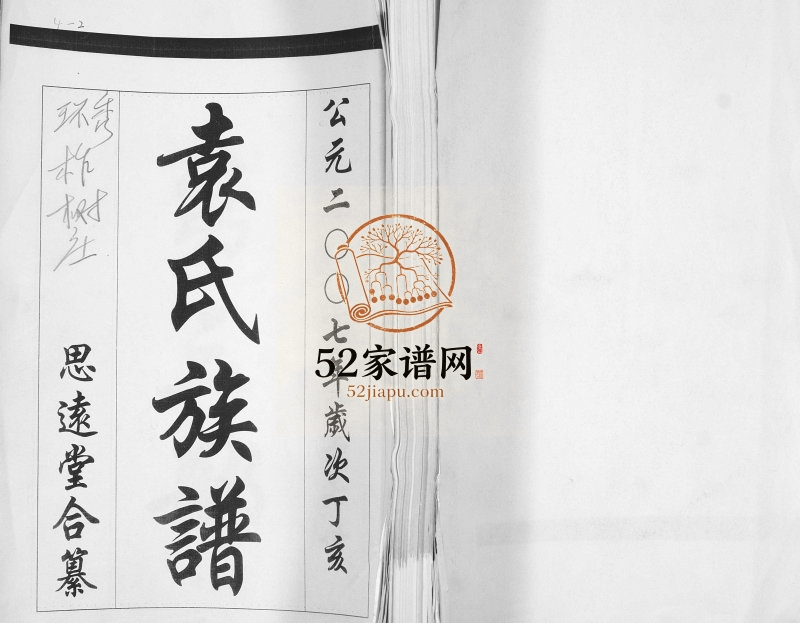 4-2
公元二〇〇七年歲次丁亥
袁氏族譜
思遠堂合纂
环秀
柞树庄
52家谱网
52jiapu.com